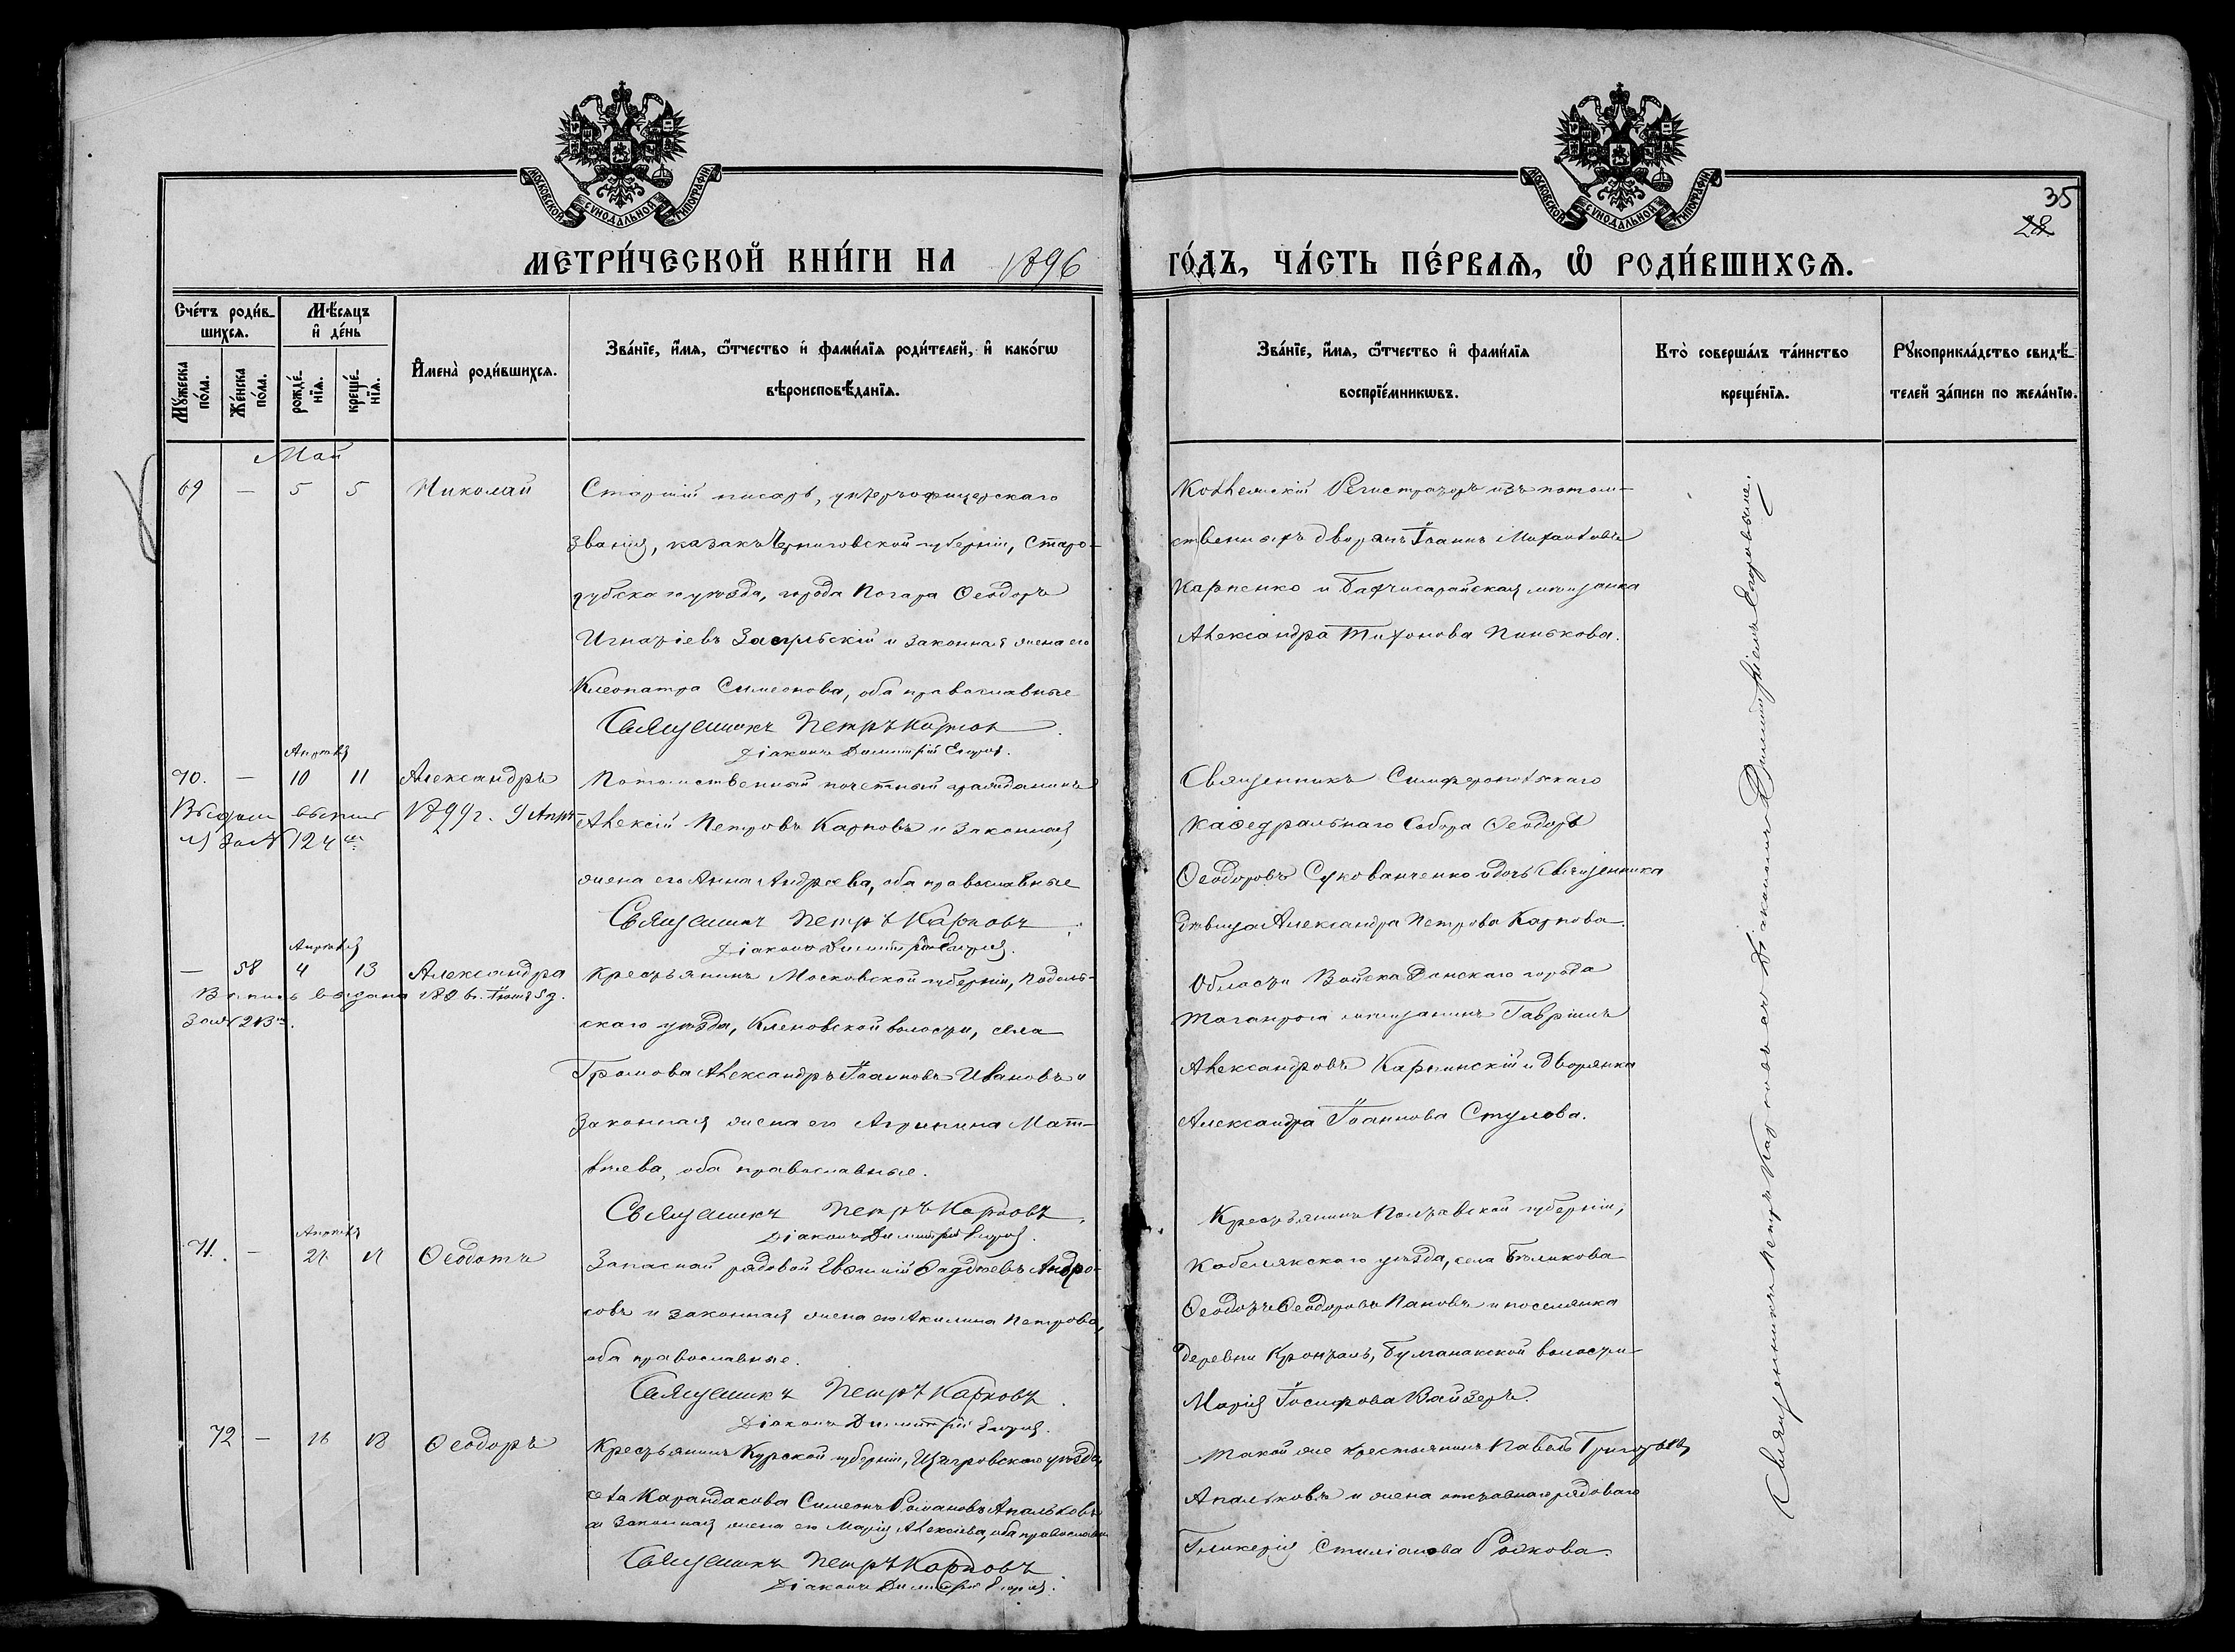 МОСКОВСКОЙ СУНОДАЛЬНОЙ ТИПОГРАФІИ
МОСКОВСКОЙ СУНОДАЛЬНОЙ ТИПОГРАФІИ
35
28
МЕТРИ́ЧЕСКОЙ КНИ́ГИ НА 1896
ГО́ДЪ, ЧА́СТЬ ПЕ́РВАЯ, Ѡ РОДИ́ВШИХСЯ.
Сче́тъ роди́в-
шихся.
Мѣ́сяцъ
и де́нь
Му́жеска по́ла.
Же́нска по́ла.
рожде́-
нїя.
креще́-
нїя.
Имена̀ роди́вшихся.
Зва́нїе, и́мя, ѻ́тчество и фами́лїя роди́телей, и како́гѡ
вѣроисповѣ́данїя.
Зва́нїе, и́мя, ѻ́тчество и фами́лїя
воспрїе́мникѡвъ.
Кто̀ соверша́лъ та́инство
креще́нїя.
Рꙋкоприкла́дство свидѣ́-
телей за́писи по жела́нїю.
Май
69 — 5 5 Николай
Старшій писарь, унтеръ-офицерскаго
званія, казакъ Черниговской губерніи, Старо-
дубскаго уѣзда, города Погара Ѳеодоръ
Игнатіевъ и законная жена его
Клеопатра Симеонова, оба православные
Священникъ Петръ Карповъ.
Діаконъ Димитрій Егоровъ.
Коллежскій Регистраторъ изъ потом-
ственныхъ дворянъ Іоаннъ Михайловъ
Карпенко и Бахчисарайская мѣщанка
Александра Тихонова Пинькова.
Апрѣля
70. — 10 11 Александръ
Выдана выпись 1899 г. 9 Апрѣ-
ля за № 124
Потомственный почетный гражданинъ
Алексій Петровъ Карповъ и законная
жена его Анна Андреева, оба православные
Священникъ Петръ Карповъ.
Діаконъ Димитрій Егоровъ.
Священникъ Симферопольскаго
Каѳедральнаго Собора Ѳеодоръ
Ѳеодоровъ Сукованченко и дочь Священника
дѣвица Александра Петрова Карпова.
Апрѣля
— 58 4 13 Александра
Выпись выдана 1896 г. Іюня 5 д.
за № 213.
Крестьянинъ Московской губерніи, Подоль-
скаго уѣзда, Кленовской волости, села
Громова Александръ Іоанновъ Ивановъ и
законная жена его Агрипина Мат-
вѣева, оба православные.
Священникъ Петръ Карповъ.
Діаконъ Димитрій Егоровъ.
Области Войска Донскаго города
Таганрога мѣщанинъ Гавріилъ
Александровъ Карпинскій и дворянка
Александра Іоаннова Стулова.
Апрѣля
71. — Ѳеодотъ
Запасной рядовой Евѳимій Ѳаддѣевъ Андро-
совъ и законная жена его Акилина Петрова,
оба православные.
Священникъ Петръ Карповъ.
Діаконъ Димитрій Егоровъ.
Крестьянинъ Полтавской губерніи,
Кобелякскаго уѣзда, села Бѣликова
Ѳеодотъ Ѳеодоровъ Пановъ и поселянка
деревни Кронталь, Булганакской волости
Марія Іосифова Вайзеръ.
72 — 16 18 Ѳеодоръ
Крестьянинъ Курской губерніи, Щигровскаго уѣзда,
села Карандакова Симеонъ Романовъ Апальковъ
и законная жена его Марія Алексіева, оба православные
Священникъ Петръ Карповъ
Діаконъ Димитрій Егоровъ.
Такой же крестьянинъ Павелъ Григорьевъ
Апальковъ и жена отставнаго рядоваго
Гликерія Стиліанова Рожкова.
Священникъ Петръ Карповъ съ діакономъ Димитріемъ Егоровымъ.